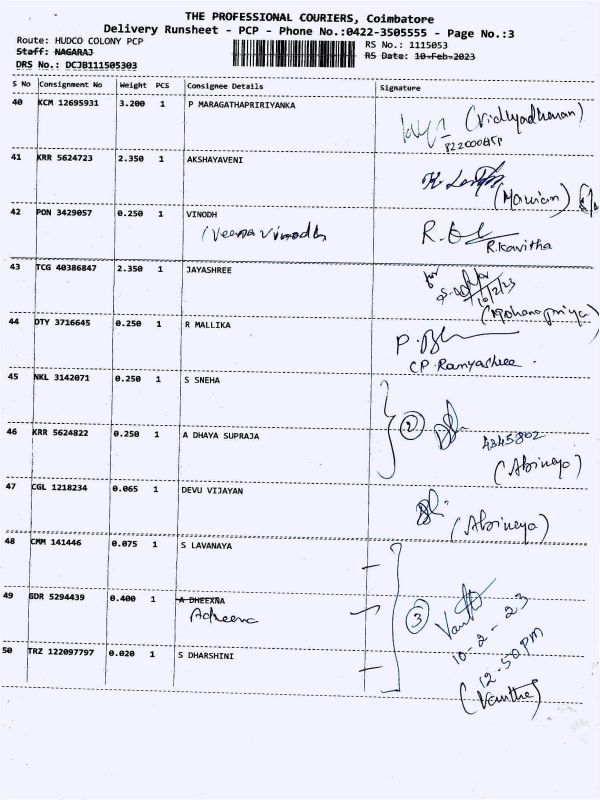 THE PROFESSIONAL COURIERS, Coimbatore
Delivery Runsheet - PCP - Phone No.:0422-3505555 - Page No.:3
Route: HUDCO COLONY PCP
RS No.: 1115053
Staff: NAGARAJ
RS Date: 10-Feb-2023
DRS No.: DCJB111505303
S No Consignment No Weight PCS Consignee Details Signature
40 KCM 12695931 3.200 1 P MARAGATHAPRIRIYANKA
(Vidhyadharan)
41 KRR 5624723 2.350 1 AKSHAYAVENI
42 PON 3429057 0.250 1 VINODH
Veena Vinodh
R.Kavitha
43 TCG 40386847 2.350 1 JAYASHREE
for
10/2/23
44 DTY 3716645 0.250 1 R MALLIKA
CP.Ramyashree.
45 NKL 3142071 0.250 1 S SNEHA
2
46 KRR 5624822 0.250 1 A DHAYA SUPRAJA
4345802
(Abinaya)
47 CGL 1218234 0.065 1 DEVU VIJAYAN
(Abinaya)
48 CMM 141446 0.075 1 S LAVANAYA
49 GDR 5294439 0.400 1 A DHEEXNA
Adheena
3
10-2-23
12-50PM
50 TRZ 122097797 0.020 1 S DHARSHINI
(Vanitha)